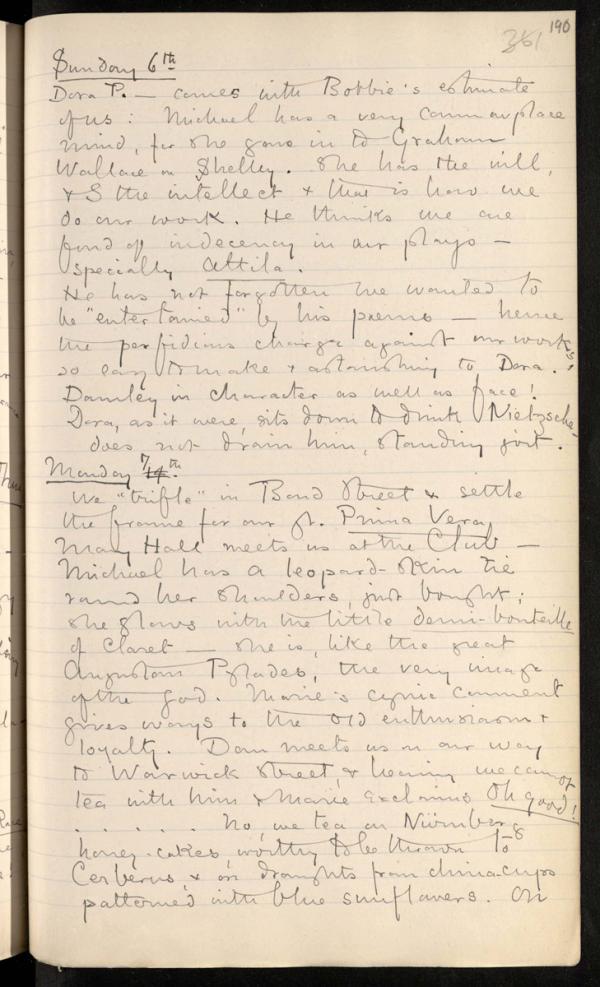 190
361
Sunday 6th
Dora P. — comes with Bobbie's estimate
of us: Michael has a very commonplace
mind, for she gone in to Graham
Wallace on Shelley. She has the will,
& S the intellect & that is how we
do our work. He thinks we are
fond of indecency in our plays —
specially Attila.
He has not forgotten we wanted to
be "entertained" by his poems — hence
the perfidious charge against our works,
so easy to make & astonishing to Dora.
Darnley in character as well as face!
Dora, as it were, sits down to drink Nietzsche –
does not drain him, standing
Monday 7th.
We "trifle" in Bond Street & settle
the frame for our Prima Vera
Mary Hall meets us at the Club —
Michael has a leopard-skin tie
round her shoulders, just bought;
she glows with the little demi-bouteille
of Claret — she is, like the great
Augustan Pylades, the very image
of the god. Marie's cynic comment
gives ways to the old enthusiasm &
loyalty. Dom meets us on our way
to Warwick Street, & hearing we cannot
tea with him & Marie exclaims Oh good!
. . . . . . No, we tea on Nürnberg
honey-cakes, worthy to be thrown to
Cerberus & on draughts from china-cups
patterned with blue sunflowers. On